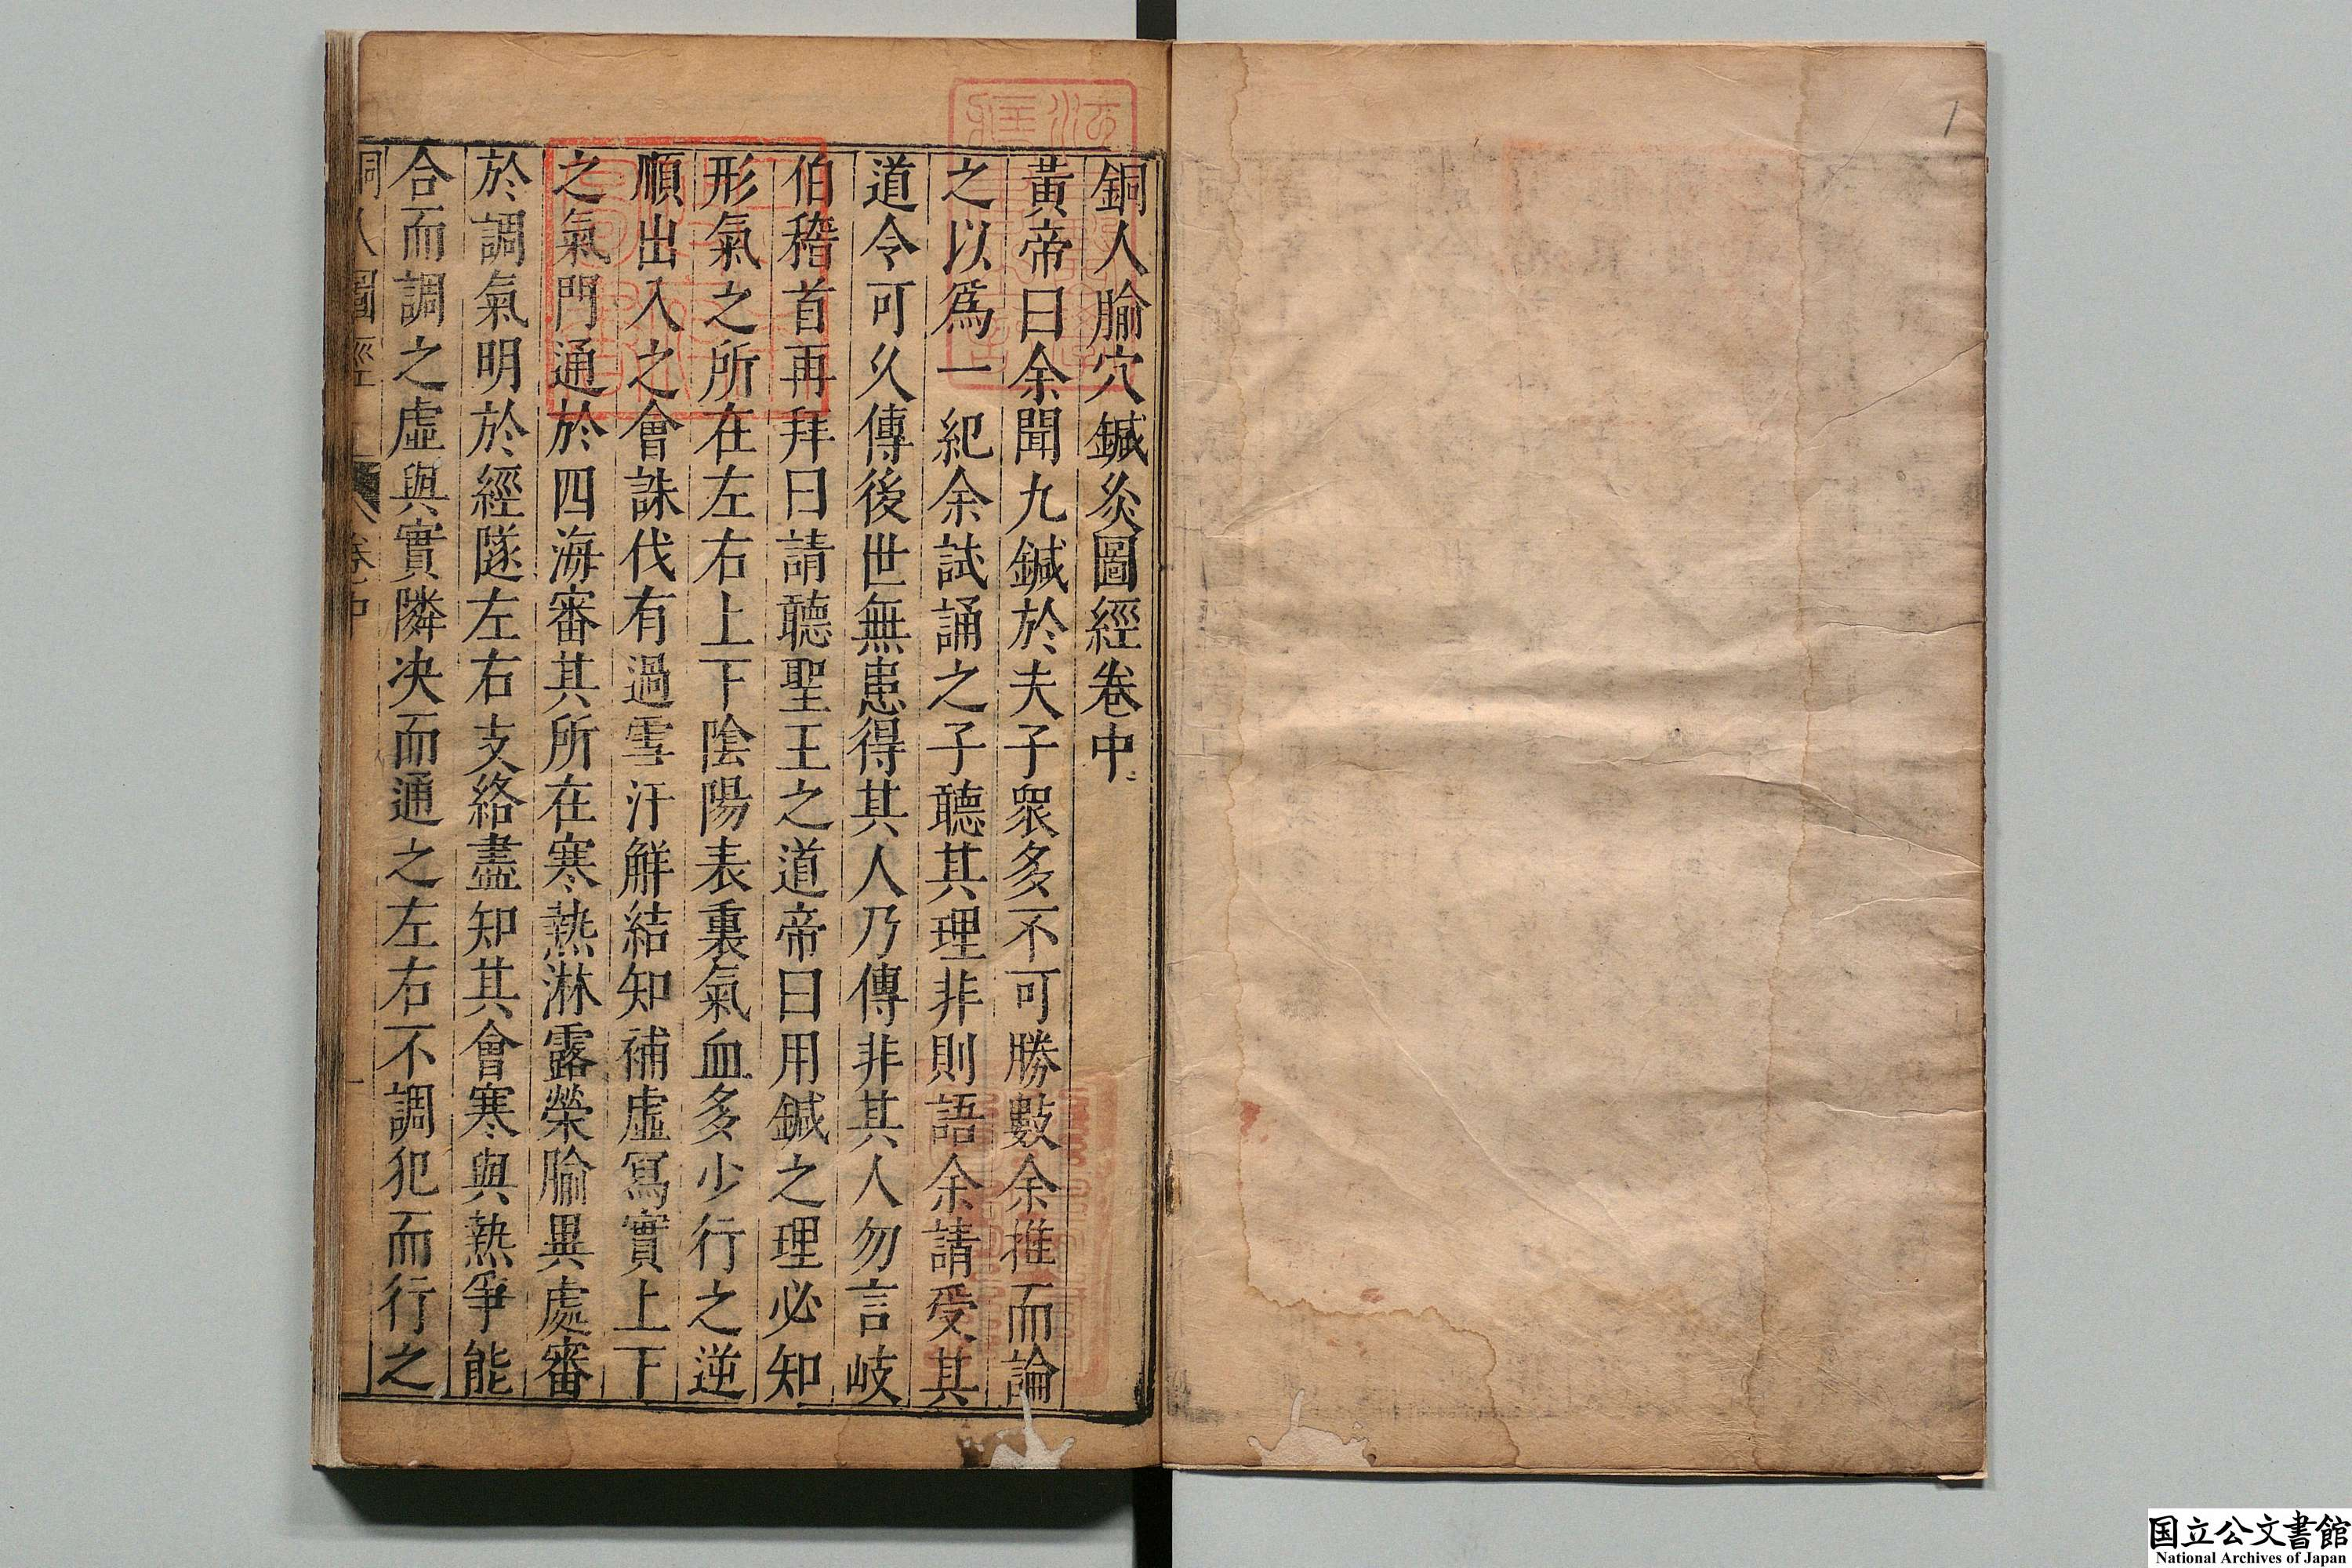 銅人腧穴鍼灸圖經卷中
黃帝曰余聞九鍼於夫子衆多不可勝數余推而論
之以爲一紀余試誦之子聽其理非則語余請受其
道令可久傳後世無患得其人乃傳非其人勿言岐
伯稽首再拜曰請聽聖王之道帝曰用鍼之理必知
形氣之所在左右上下陰陽表裏氣血多少行之逆
順出入之會誅伐有過雪汗解結知補虛寫實上下
之氣門通於四海審其所在寒熱淋露榮腧異處審
於調氣明於經隧左右支絡盡知其會寒與熱爭能
合而調之虛與實隣决而通之左右不調犯而行之
銅人圖經 卷中 一
1
国立公文書館
National Archives of Japan